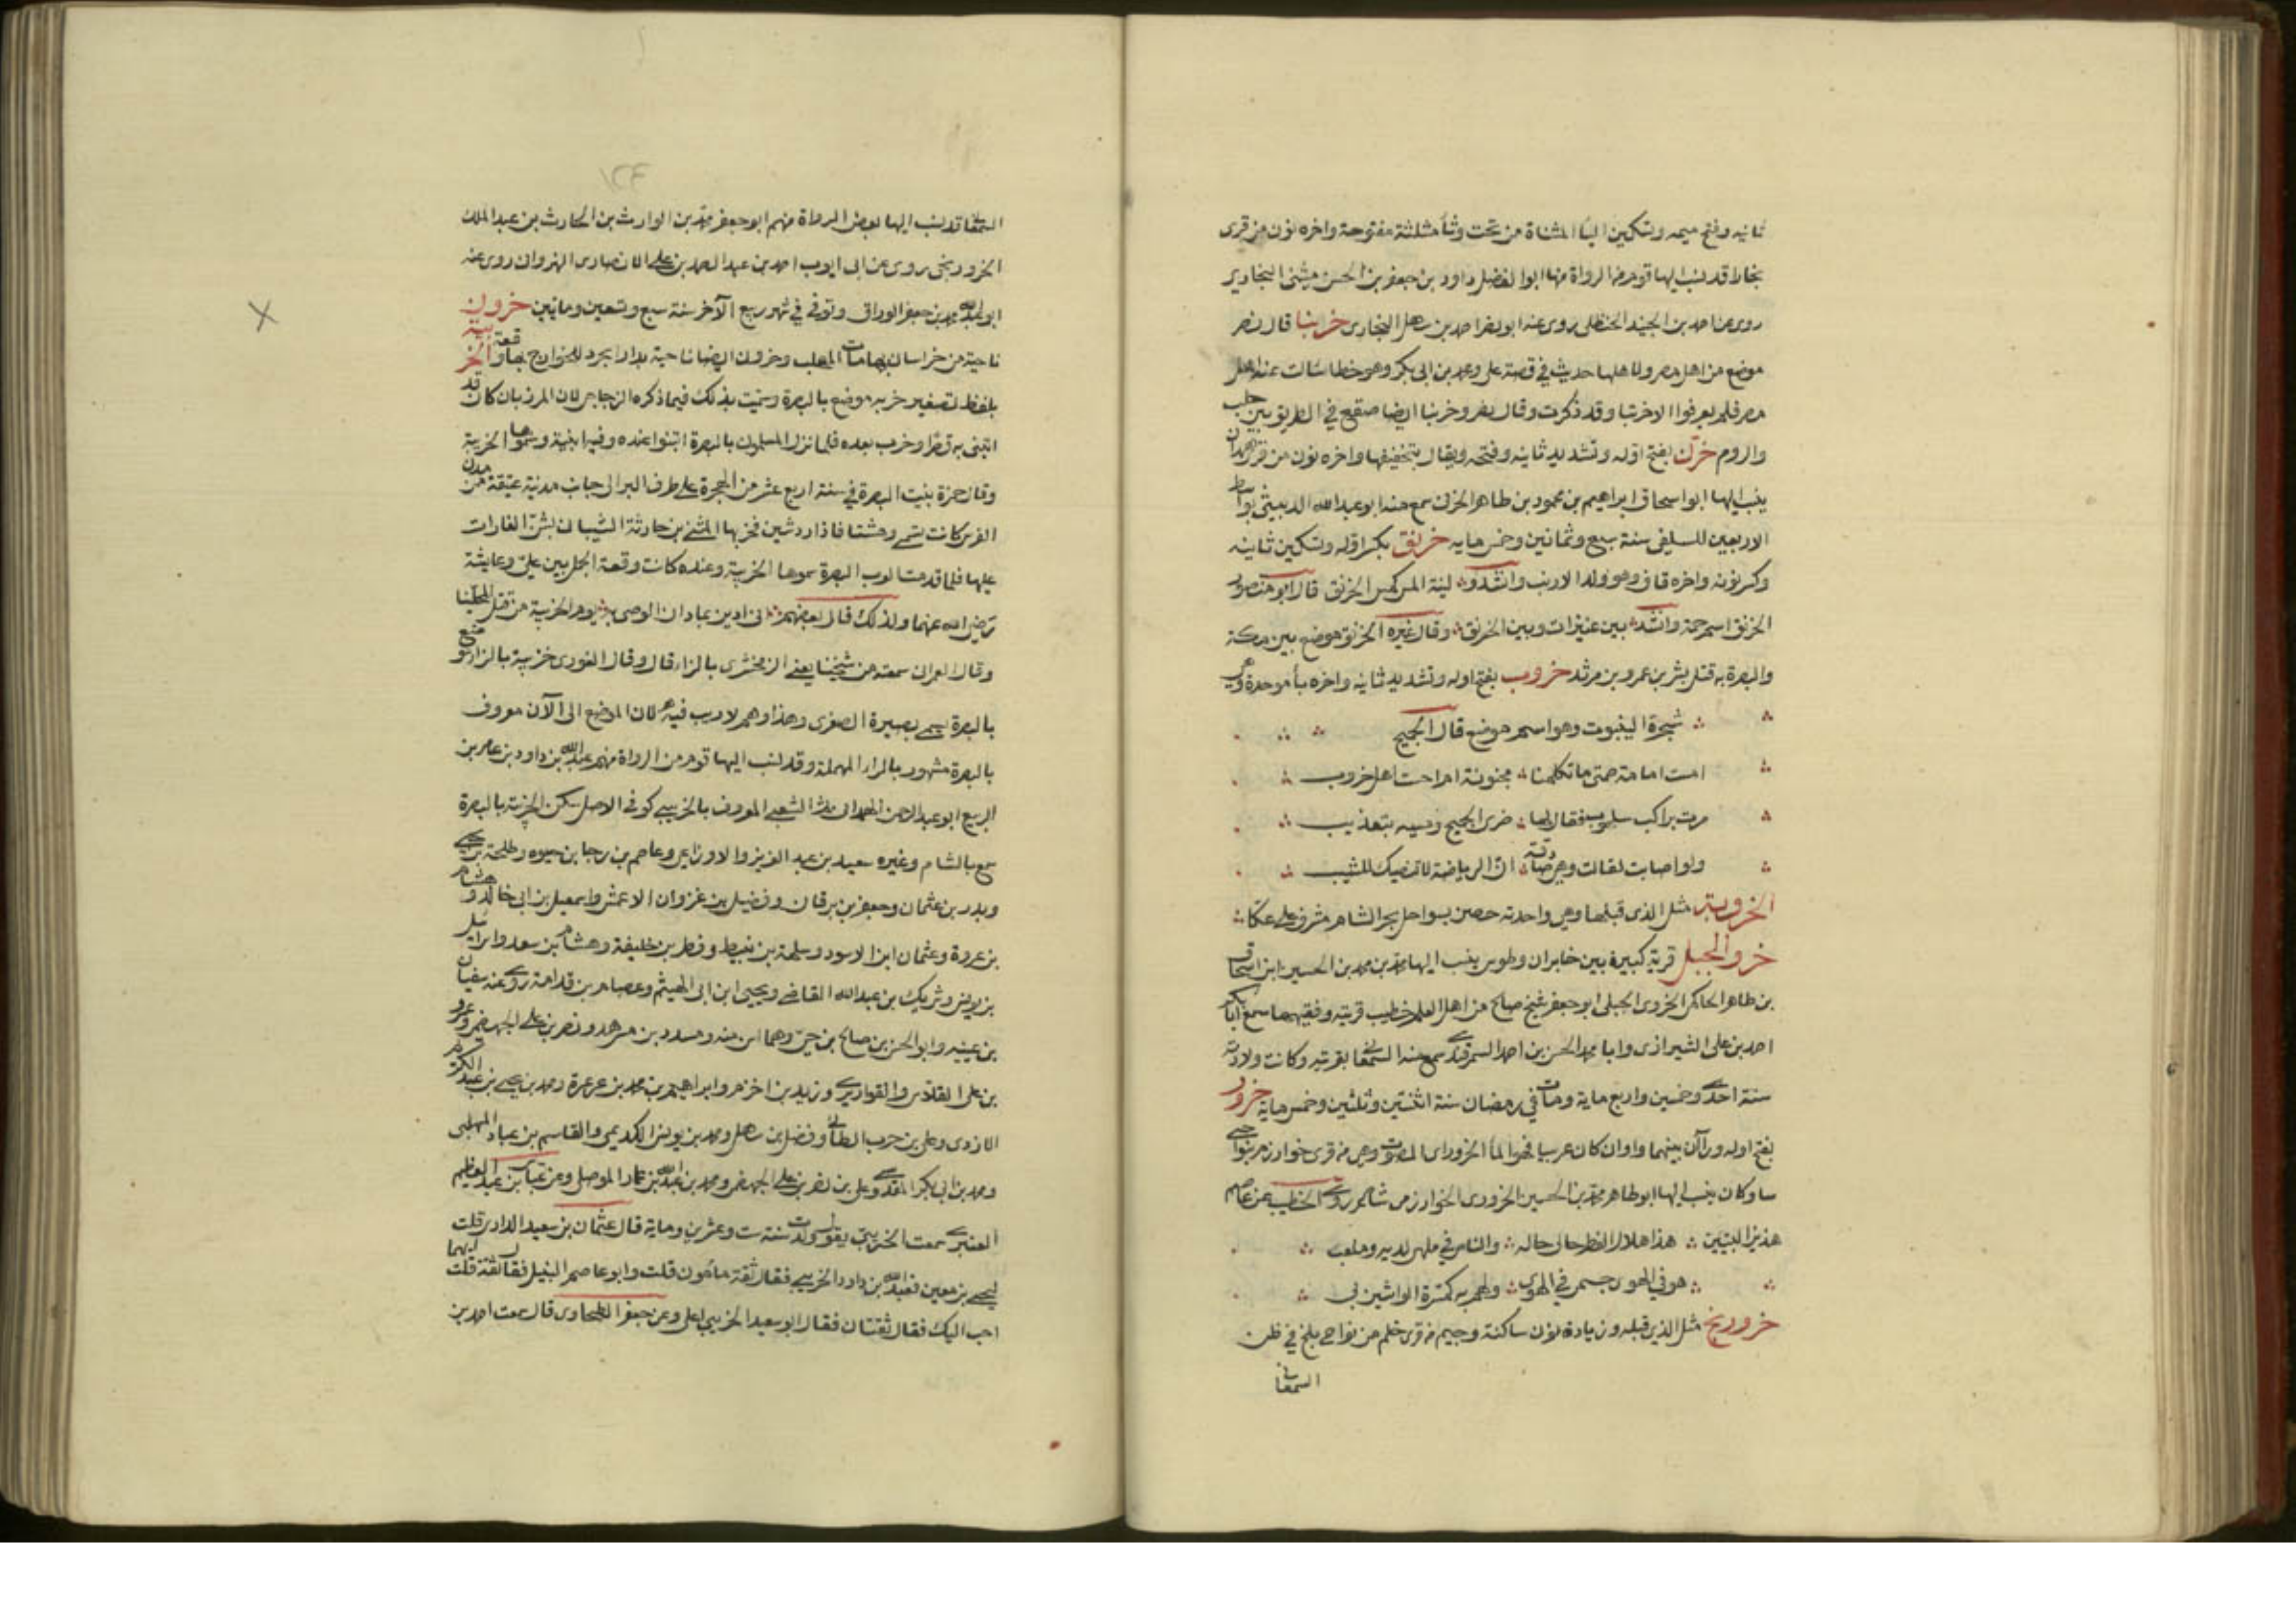 ثانيه وفتح ميمه وتسكين اليا المثناة من تحت وثا مثلثة مفتوحة واخره نون من قرى
بخارا قد نسب اليها قوم من الرواة منها ابو الفضل داود بن جعفر بن الحسن ميثنى البخارى
روى عن احمد بن الجنيد الحنظلى روى عنه ابو نصر احمد بن سهل البخارى خربتا قال نصر
موضع من اهل مصر ولاهلها حديث فى قصة على ومحمد بن ابى بكر وهو خطا سالت عنه اهل
مصر فلم يعرفوا الا خرتبا وقد ذكرت وقال نصر وخربتا ايضا صقع فى الطريق بين حلب
والروم خرّن بفتح اوله وتشديد ثانيه وفتحه ويقال بتخفيفها واخره نون من قرى همدان
ينسب اليها ابو اسحاق ابراهيم بن محمود بن طاهر الخرنى سمع منه ابو عبد الله الدبيثى بواسط
الاربعين للسلفى سنة سبع وثمانين وخمس مايه خرنق بكسر اوله وتسكين ثانيه
وكسر نونه واخره قاف وهو ولد الارنب وانشدوا لينة المس كمس الخرنق قال ابو منصور
الخرنق اسم حمة وانشد بين عنيزات وبين الخرنق وقال غيره الخرنق موضع بين مكة
والبصرة به قتل بشر بن عمرو بن مرثد خروب بفتح اوله وتشديد ثانيه واخره باء موحدة وهى
شجرة الينبوت وهو اسم موضع قال الجميح
امست امامة صمتى ما تكلمنا مجنونة ام احست اهل خروب
مرت براكب سلهوب فقال لها ضرى الجميح ومسيه بتعذيب
ولو اصابت لقالت وهى صادقة ان الرياضة لا تنصبك للشيب
الخروبة مثل الذى قبلها وهى واحدته حصن بسواحل بحر الشام مشرف على عكا
خرو الجبل قرية كبيرة بين خابران وطوس ينسب اليها محمد بن محمد بن الحسين ابن اسحاق
بن طاهر الحاكم الخروى الجبلى ابو جعفر شيخ صالح من اهل العلم خطيب قريته وفقيهها سمع ابا بكر
احمد بن على الشيرازى وابا محمد الحسن بن احمد السمرقندى سمع منه السمعانى بقريته وكانت ولادته
سنة احدى وخمسين واربع ماية ومات فى رمضان سنة اثنتين وثلثين وخمس ماية خرور
بفتح اوله وراآن بينهما واو ان كان عربيا فهو الماء الخرور اى المصوت وهى من قرى خوارزم بنواحى
ساوكان ينسب اليها ابو طاهر محمد بن الحسين الخرورى الخوارزمى شاعر روى الخطيب عن عاصم
هذين البيتين هذا هلال الفطر حالى حاله والناس فى ملهى لديه وملعب
هو فى الهوى جسمى فى الهوى ولهم به كثرة الواشين بى
خرورنج مثل الذى قبله وزيادة نون ساكنة وجيم من قرى خلم من نواحى بلخ فى ظن
السمعانى
السمعانى قد نسب اليها بعض الرواة منهم ابو جعفر محمد بن الوارث بن الحارث بن عبد الملك
الخرورنجى يروى عن ابى ايوب احمد بن عبد الصمد بن على الانصارى النهروانى روى عنه
ابو عبد الله محمد بن جعفر الوراق وتوفى فى شهر ربيع الآخر سنة سبع وتسعين وماتين خرون
ناحية من خراسان بها مات المهلب وخرون ايضا ناحية بدار ابجرد للخوارج بها وقعة الخريبة
بلفظ تصغير خربه موضع بالبصرة وسميت بذلك فيما ذكره الزجاجى لان المرزبان كان قد
ابتنى به قصرا وخرب بعده فلما نزل المسلمون بالبصرة ابتنوا عنده وفيه ابنية وسموها الخريبة
وقال حمزة بنيت البصرة فى سنة اربع عشر من الهجرة على طرف البر الى جانب مدينة عتيقة من مدن
الفرس كانت تسمى وهشتاباذ اردشير فخربها المثنى بن حارثة الشيبانى بشن الغارات
عليها فلما قدمت العرب البصرة سموها الخريبة وعنده كانت وقعة الجمل بين على وعايشة
رضى الله عنهما ولذلك قال بعضهم انى ادين بما دان الوصى به يوم الخريبة من قتل المحلينا
وقال العمرانى سمعته من شيخنا يعنى الزمخشرى بالزاء قال وقال الغورى خزيبة بالزاء موضع
بالبصرة يسمى بصيرة الصغرى وهذا وهم لا ريب فيه لان الموضع الى الآن معروف
بالبصرة مشهور بالراء المهملة وقد نسب اليها قوم من الرواة منهم عبد الله بن داود بن عامر بن
الربيع ابو عبد الرحمن الهمدانى ثم الشعبى المعروف بالخريبى كوفى الاصل سكن الخريبة بالبصرة
سمع بالشام وغيره سعيد بن عبد العزيز والاوزاعى وعاصم بن رجا بن حيوه وطلحة بن يحيى
وبدر بن عثمان وجعفر بن برقان وفضيل بن غزوان الاعمش واسمعيل بن ابى خالد وهشام
بن عروة وعثمان ابن الاسود وسلمة بن نبيط وفطر بن خليفة وهشام بن سعد واسرائيل
بن يونس وشريك بن عبد الله القاضى ويحيى ابن ابى الهيثم وعصام بن قدامة روى عنه سفيان
بن عيينه وابو الحسن بن صالح بن حىّ وهما اسن منه ومسدد بن مسرهد ونصر بن على الجهضمى وعمرو
بن على الفلاس والقواريرى وزيد بن اخزم وابراهيم بن محمد بن عرعرة ومحمد بن يحيى بن عبد الكريم
الازدى وعلى بن حرب الطائى وفضل بن سهل ومحمد بن يونس الكديمى والقاسم بن عباد المهلبى
ومحمد بن ابى بكر المقدمى وعلى بن نصر بن على الجهضمى ومحمد بن عبد الله بن عمار الموصلى وعن عباس بن عبد العظيم
العنبرى سمعت الخريبى يقول ولدت سنة ست وعشرين وماية قال عثمان بن سعيد الدارى قلت
ليحيى بن معين فعبد الله بن داود الخريبى فقال ثقة مامون قلت وابو عاصم النبيل فقال ثقة قلت ايهما
احب اليك فقال ثقتان فقال ابو سعيد الخريبى اعلى وعن جعفر الطحاوى قال سمعت احمد بن